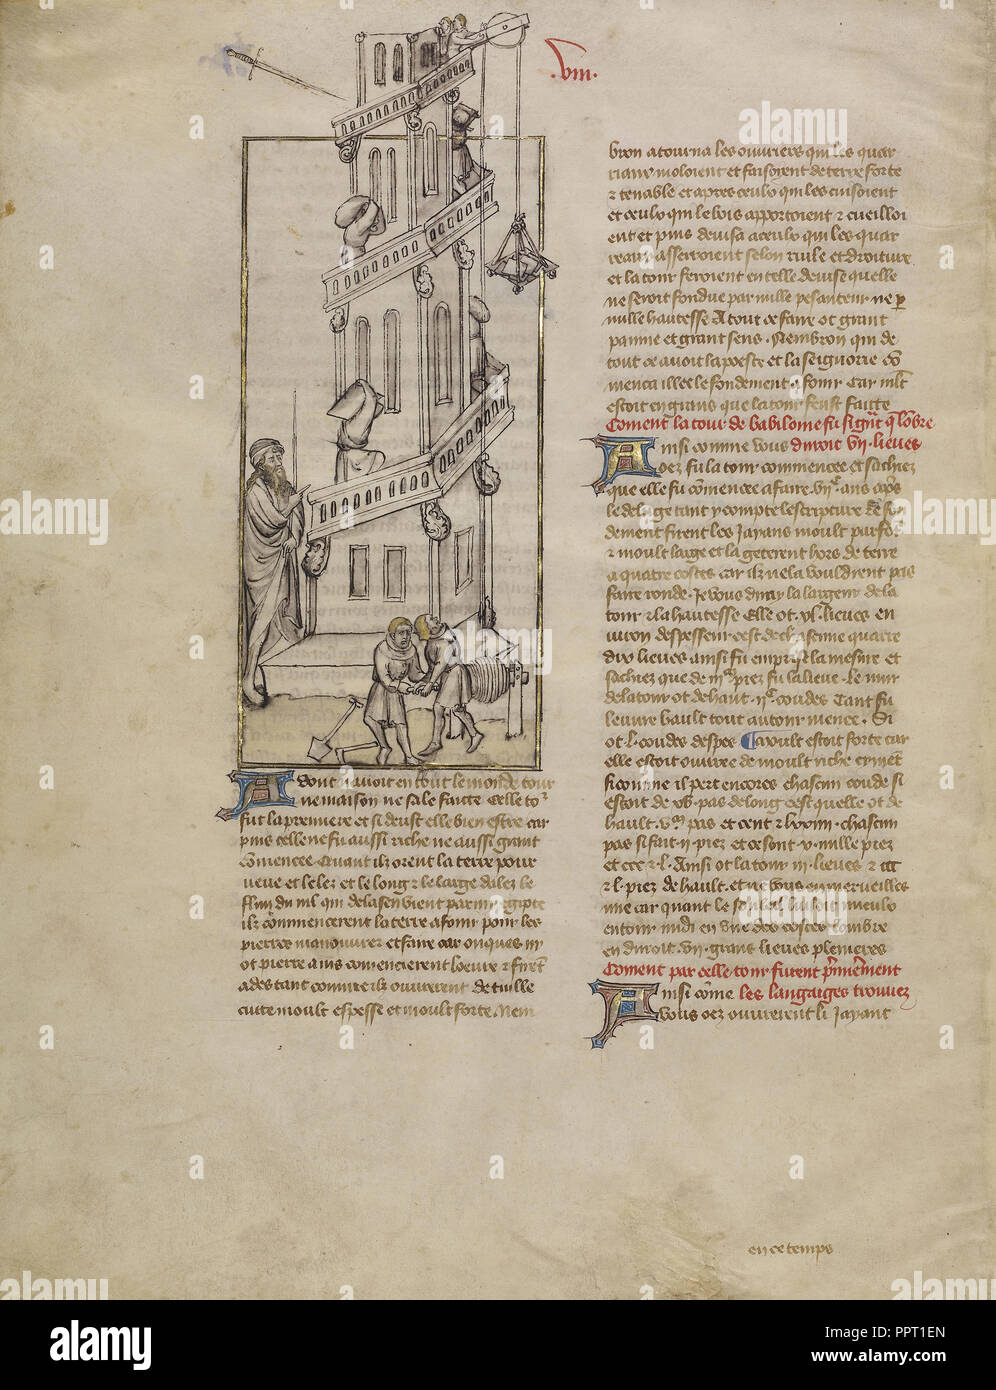 .viii.
A dont navoit en tout le monde tour
ne maison ne sale faitte celle to
fut la premiere et si deust elle bien estre car
puis celle ne fu aussi riche ne aussi grant
Quant ilz orent la terre pour
veue et le lez et le long & le large dalez le
flun du nil qui
ilz commencerent la terre a fouir pour les
pierres et faire car onques
ot pierre ains
ades tant comme ilz ouvrerent de tuille
cuite moult espesse et moult forte Nem
bron atourna les ouvriers qui les quar
riaux moloient et faisoyent de terre forte
& tenable et apres ceulx qui les cuisoient
et ceulx qui le bois apportoient & cueilloi
ent et puis devisa a ceulx qui les quar
reaux asserroient selon riule et droiture
et la tour feroient en telle devise quelle
ne seroit fondue par nulle pesanteur ne p
nulle hautesse A tout ce faire ot grant
painne et grant sens . Nembron qui de
tout ce avoit la poeste et la seignorie
menca illec le fondement a fouir Car
estoit en grans que la tour feust faitte
Coment la tour de babilone fu
A insi comme vous duroit vii lieues
oez fu la tour commencee et sachiez
que elle fu commencee a faire
le deluge tant y compte lescripture Le fon
dement firent les Jayans moult parfont
& moult large et la geterent hors de terre
a quatre costes car ilz ne la vouldrent pas
faire ronde . Je vous diray la largeur de la
tour & la hautesse Elle ot .xl. lieues en
viron despesseur cest de chascune quarre
dix lieues ainsi fu la mesure et
sachiez que de piez fu la lieue . Le mur
de la tour ot de haut coudes Tant fu
leuvre hault tout autour menee . Si
ot .l. coudes despes Moult estoit forte car
elle estoit ouvree de moult riche ciment
si comme il pert encores chascun coude si
estoit de xv. pas de long cest quelle ot de
hault pas et cent & chascun
pas si fait piez et ce sont v. mille piez
et ccc & l. Ainsi ot la tour lieues &
& l. piez de hault . et ne vous en merveilles
mie car quant le soulail luisoit
entour midi en une des costes lombre
en duroit .vii. grans lieues plenieres
Coment par celle tour furent
A insi come les langaiges trouvez
vous oez ouvrerent li Jayant
en ce temps
alamy
PPT1EN
www.alamy.com